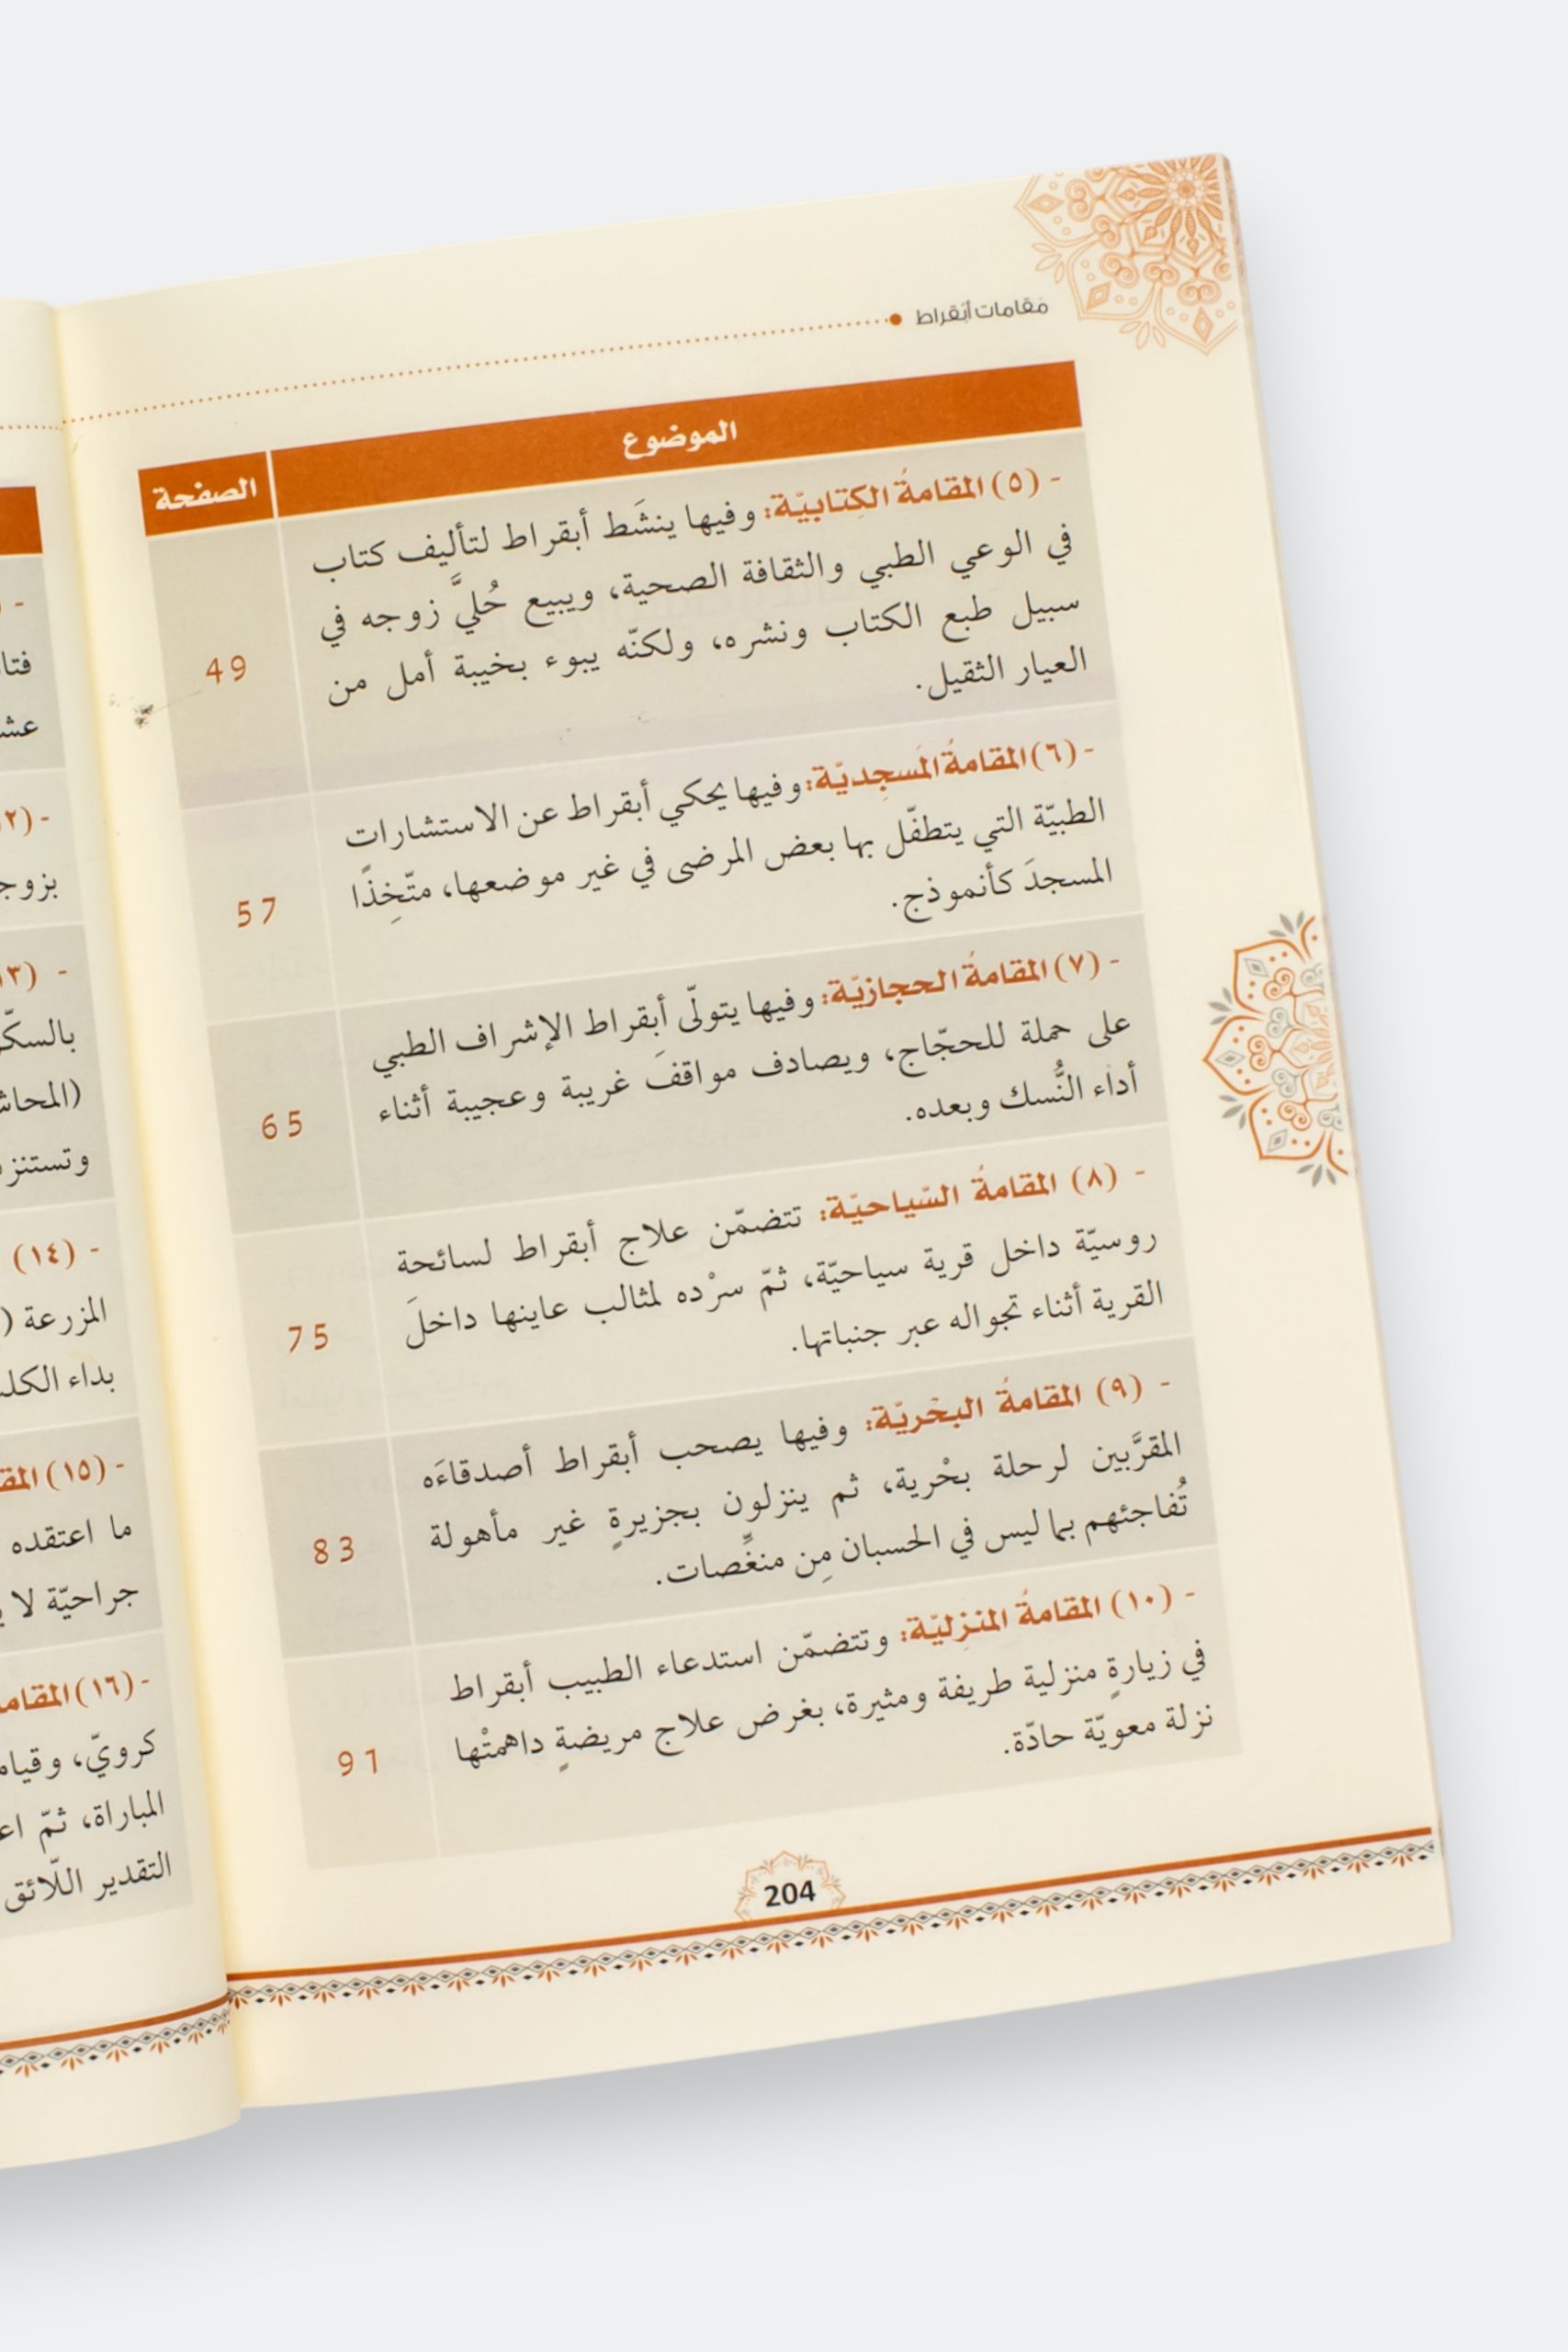 مَقامات أبُقراط
الموضوع
الصفحة
- (٥) المقامةُ الكِتابيّة: وفيها ينشَط أبقراط لتأليف كتاب
في الوعي الطبي والثقافة الصحية، ويبيع حُليَّ زوجه في
سبيل طبع الكتاب ونشره، ولكنّه يبوء بخيبة أمل من
العيار الثقيل.
49
- (٦) المقامةُ المَسجِديّة: وفيها يحكي أبقراط عن الاستشارات
الطبيّة التي يتطفّل بها بعض المرضى في غير موضعها، متّخِذًا
المسجدَ كأنموذج.
57
- (٧) المقامةُ الحجازيّة: وفيها يتولّى أبقراط الإشراف الطبي
على حملة للحجّاج، ويصادف مواقفَ غريبة وعجيبة أثناء
أداء النُّسك وبعده.
65
- (٨) المقامةُ السّياحيّة: تتضمّن علاج أبقراط لسائحة
روسيّة داخل قرية سياحيّة، ثمّ سرْده لمثالب عاينها داخلَ
القرية أثناء تجواله عبر جنباتها.
75
- (٩) المقامةُ البحْريّة: وفيها يصحب أبقراط أصدقاءَه
المقرَّبين لرحلة بحْرية، ثم ينزلون بجزيرةٍ غير مأهولة
تُفاجئهم بما ليس في الحسبان مِن منغِّصات.
83
- (١٠) المقامةُ المنزِليّة: وتتضمّن استدعاء الطبيب أبقراط
في زيارةٍ منزلية طريفة ومثيرة، بغرض علاج مريضةٍ داهمتْها
نزلة معويّة حادّة.
91
204
عشـ
بزوجـ
- (١٣
بالسكّر
(المحاشـ
وتستنز
- (١٤)
المزرعة (
بداء الكلـ
- (١٥) المقـ
ما اعتقده
جراحيّة لا
- (١٦) المقامـ
كرويّ، وقيامـ
المباراة، ثمّ اعـ
التقدير اللّائق